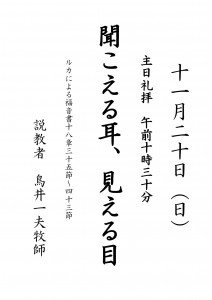 十一月二十日（日）
主日礼拝　午前十時三十分
聞こえる耳、見える目
ルカによる福音書十八章三十五節～四十三節
説教者　鳥井一夫牧師